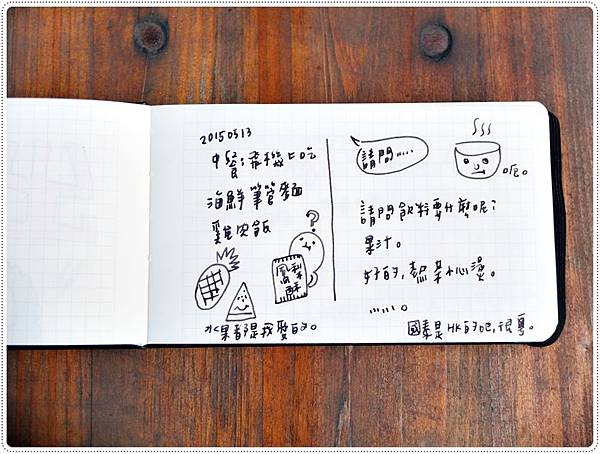 20150513
中餐:飛機上吃
海鮮筆管麵
雞肉飯
?
鳳梨酥
水果都是我愛的。
請問……
呃。
請問飲料要什麼呢?
果汁。
好的,熱茶小心燙。
……。
國泰是HK的吧,很粵。